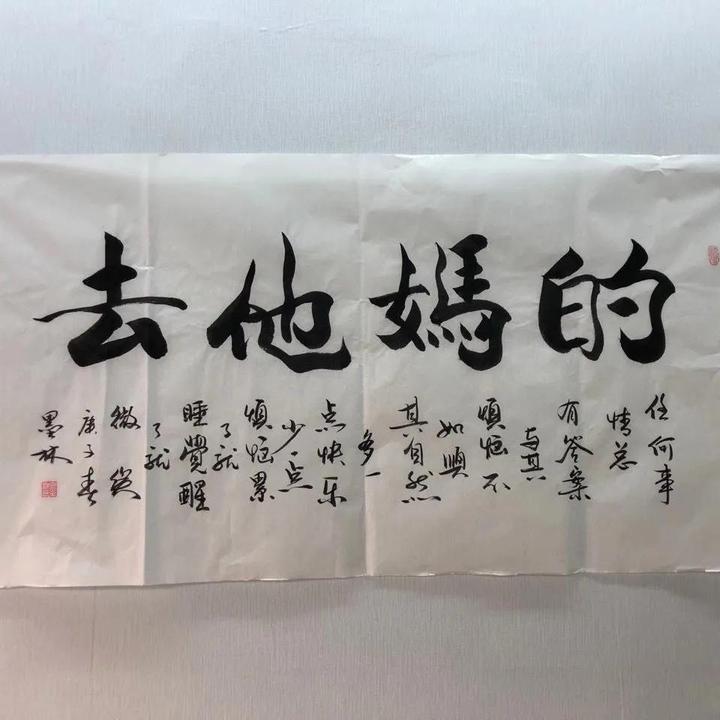 去他媽的
任何事
情总
有答案
与其
煩恼不
如順
其自然
多一
点快乐
少一点
煩恼累
了就
睡覺醒
了就
微笑
庚子春
墨林